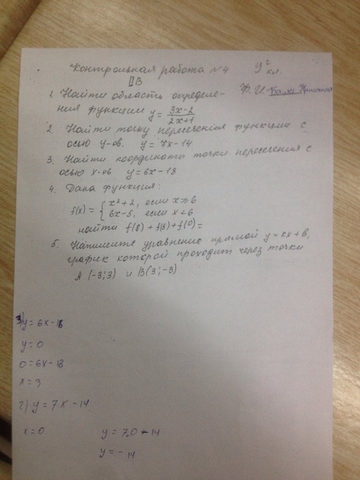 Контрольная работа №4 9² кл.
IIв
1. Найти область определе-
ния функции y = 3x-2 / 2x+1
2. Найти точку пересечения функции с
осью y-ов. y = 7x-14
3. Найти координаты точки пересечения с
осью x-ов y = 6x-18
4. Дана функция:
f(x) = { x²+2, если x≥6
6x-5, если x<6
найти f(8)+f(x)+f(0)=
5. Напишите уравнение прямой y=kx+b,
график которой проходит через точки
A(-3;3) и B(3;-3)
3) y=6x-18
y=0
0=6x-18
x=3
2) y=7x-14
x=0 y=7·0-14
y=-14